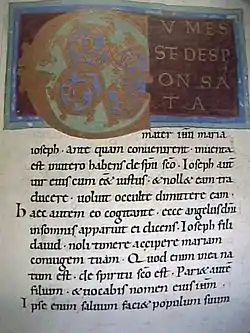 CUM ES
SET DESP
ONSA
TA
mater ihu maria
ioseph · ante quam convenirent · inventa
est in utero habens de spu sco · Ioseph aut
vir eius cum eet iustus · & nollet eam tra
ducere · voluit occulte dimittere eam ·
Haec autem eo cogitante · ecce angelus dni
in somnis apparuit ei dicens · Ioseph fili
david · noli timere accipere mariam
coniugem tuam · Quod enim in ea na
tum est · de spiritu sco est · Pari& aut
filium · & vocabis nomen eius ihm ·
Ipse enim salvum faci& populum suum